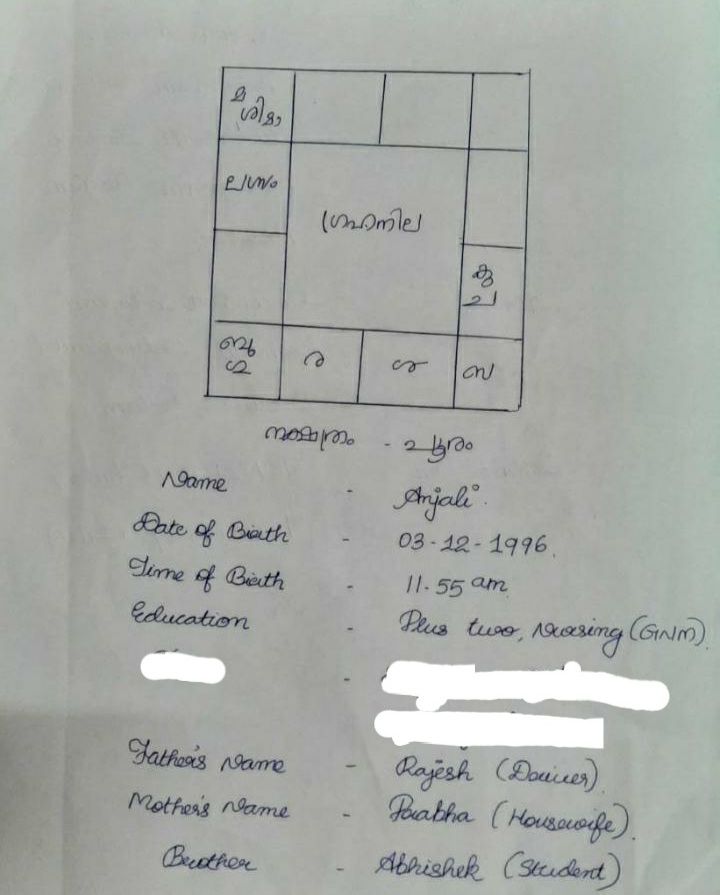 മ
ശിമാ
ലഗ്നം
ഗ്രഹനില
കു
ച
ബു
ഗു
ര
ശു
സ
നക്ഷത്രം - പൂരം
Name - Anjali.
Date of Birth - 03-12-1996.
Time of Birth - 11.55 am
Education - Plus two, Nursing (GNM).
Father's Name - Rajesh (Driver).
Mother's Name - Prabha (Housewife).
Brother - Abhishek (Student)